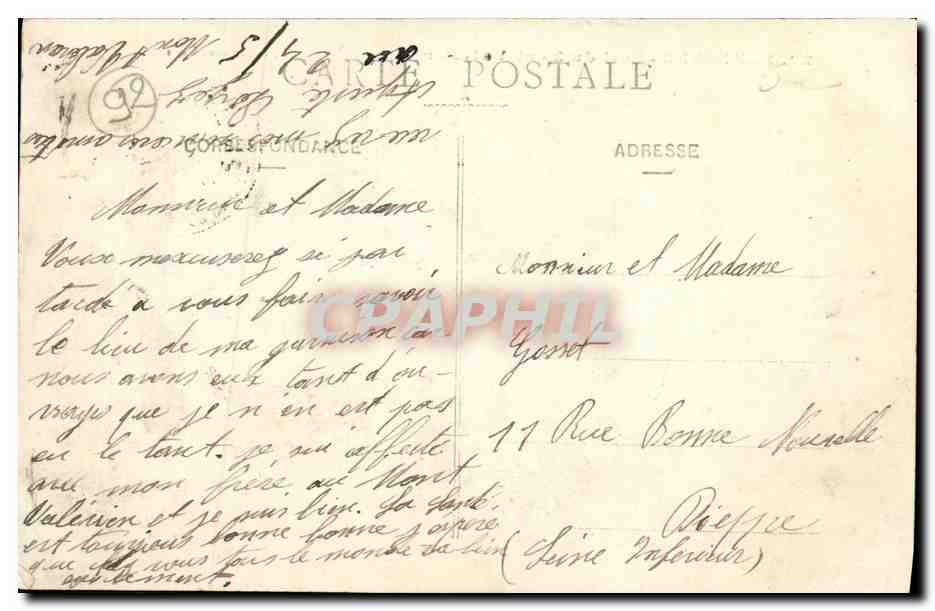 CARTE POSTALE
92
CORRESPONDANCE
ADRESSE
Monsieur et Madame
Vous mexuserez si jai
tardé a vous fair savoir
le lieu de ma garnison car
nous avons eux tant d'ou-
vrages que je n'en est pas
eu le tant. je sui affecté
avec mon frère au Mont
Valérien et je suis bien. La Santé
est toujours bonne bonne j'espere
que chez vous tout le monde va bien
egalement.
Monsieur et Madame
Gosset
11 Rue Bonne Nouvelle
Dieppe
(Seine Inferieur)
au 24/5 Mont Valérien
CPAPHIL